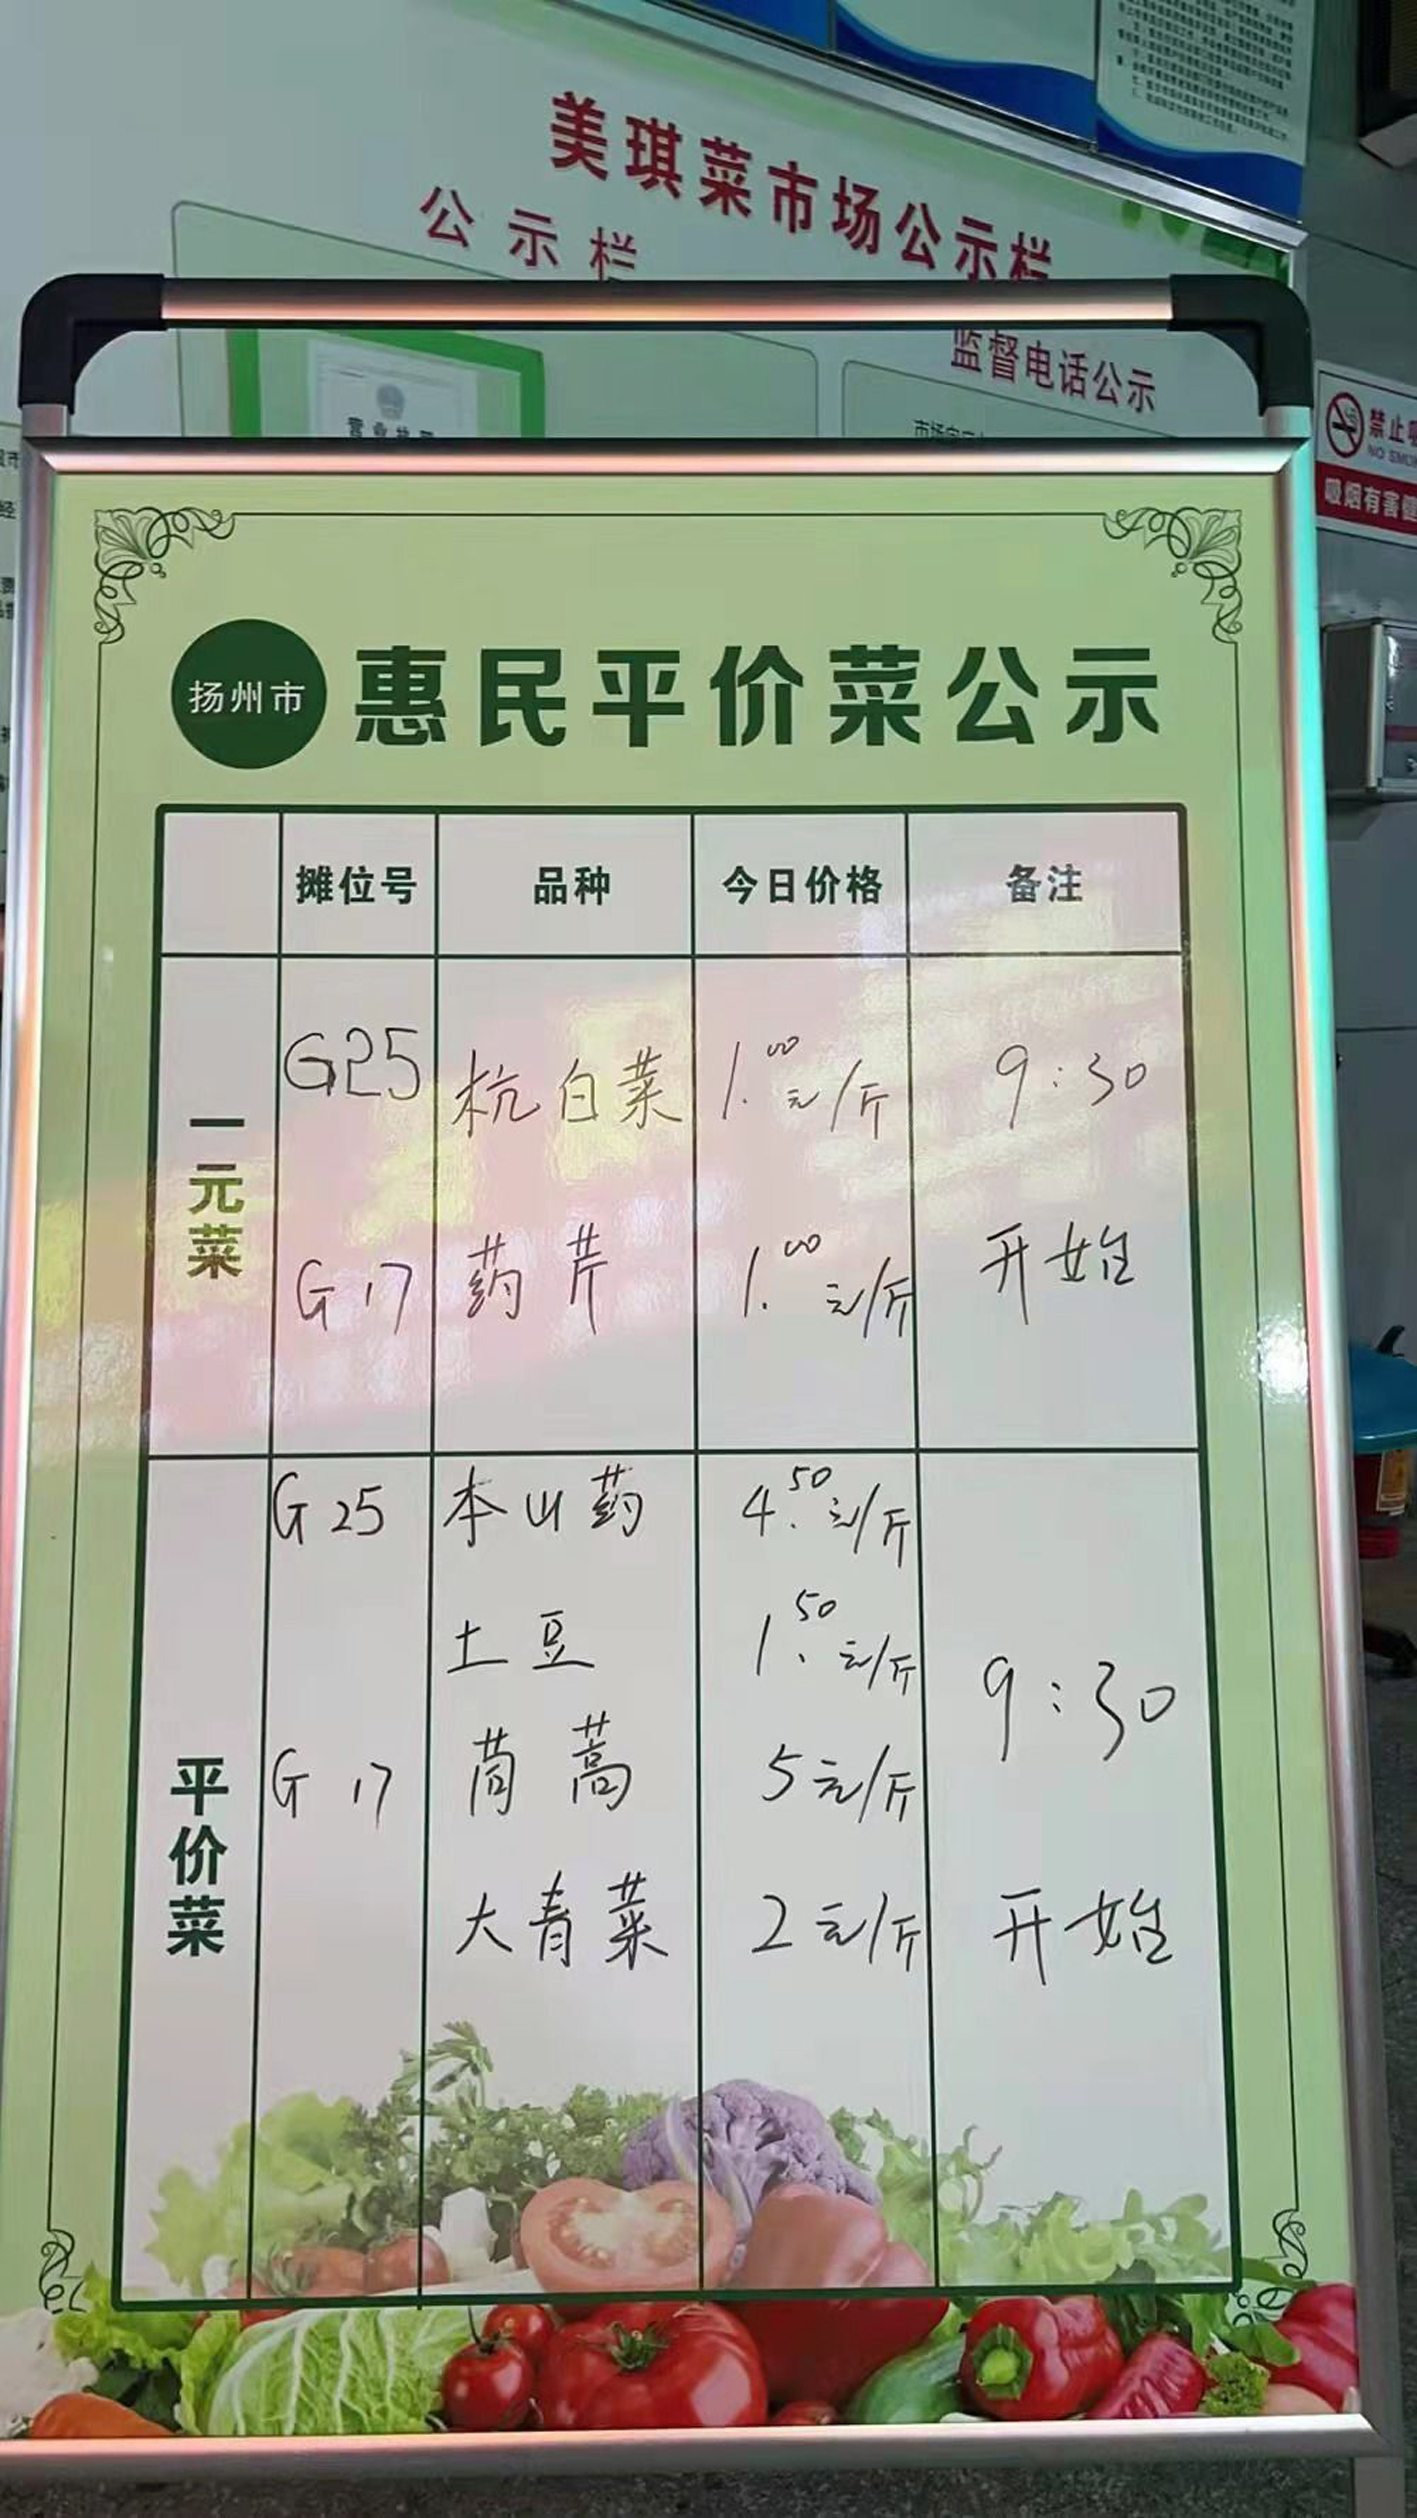 美琪菜市场公示栏
公示栏
监督电话公示
营业执照
禁止吸
NO SMOK
吸烟有害健
扬州市 惠民平价菜公示
摊位号 品种 今日价格 备注
一元菜
G25 杭白菜 1.00元/斤 9:30
G17 药芹 1.00元/斤 开始
平价菜
G25 本山药 4.50元/斤
土豆 1.50元/斤
9:30
G17 茼蒿 5元/斤
大青菜 2元/斤 开始